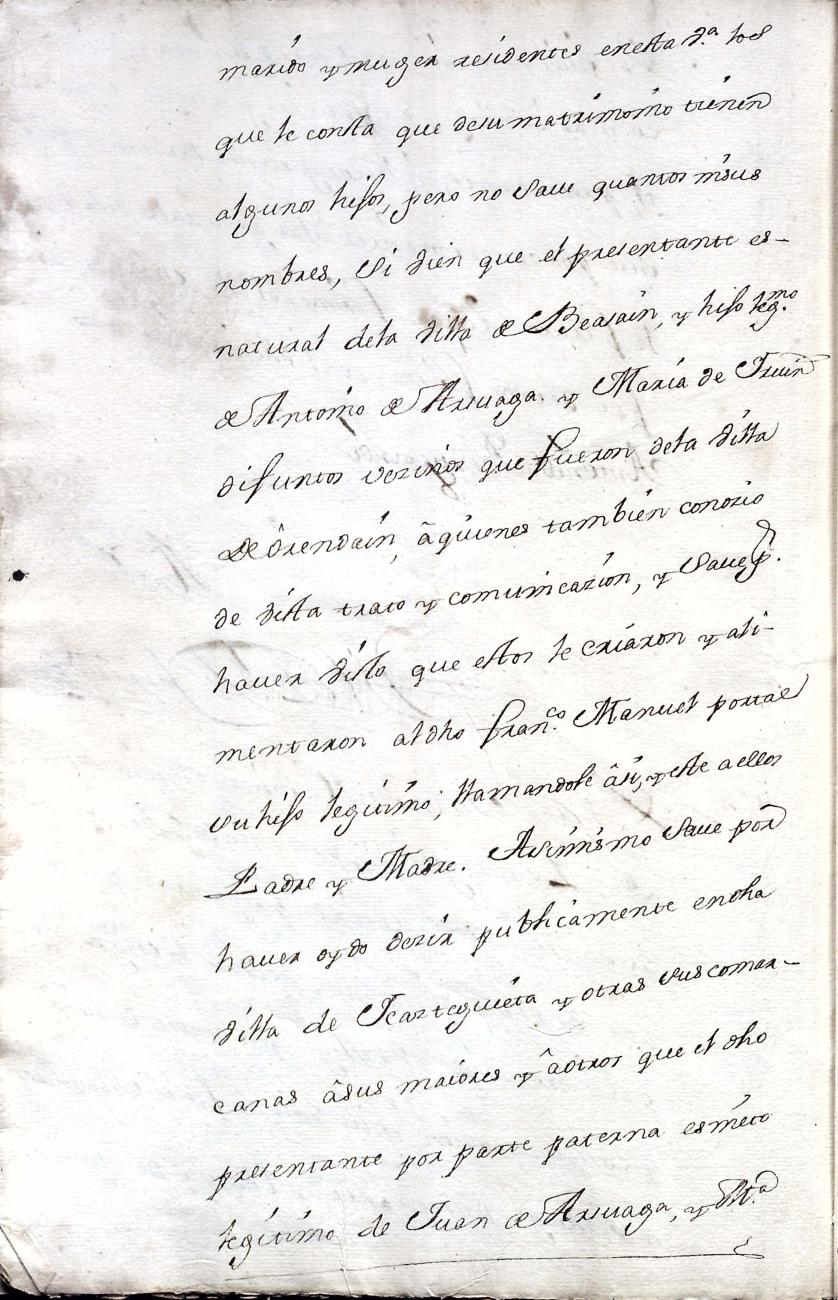 marido y muger residentes enesta v.ª los
que le consta que desu matrimonio tienen
algunos hijos, pero no save quantos nisus
nombres, si bien que el presentante es-
natural dela villa de Beasain, y hijo leg.mo
de Antonio de Arsuaga. y Maria de Irwin
difuntos vezinos que fueron dela villa
de òrendain, âquienes tambien conozio
de vista trato y comunicazion, y save p.r
haver visto que estos le criaron y ali-
mentaron aldho fran.co Manuel portal
su hijo legitimo, llamandole âsi, y este aellos
Padre y Madre. Asimismo save por
haver oydo dezir publicamente endha
villa de Icazteguieta y otras suscomar-
canas âsus maiores y âotros que el dho
presentante por parte paterna esnieto
legitimo de Juan de Arsuaga, y